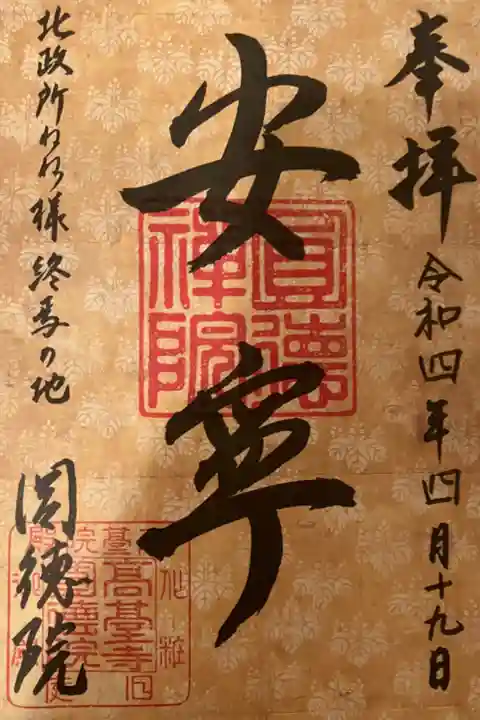 奉拝
令和四年四月十九日
安寧
圓德禅院
北政所ねね様終焉の地
圓徳院
高䑓寺